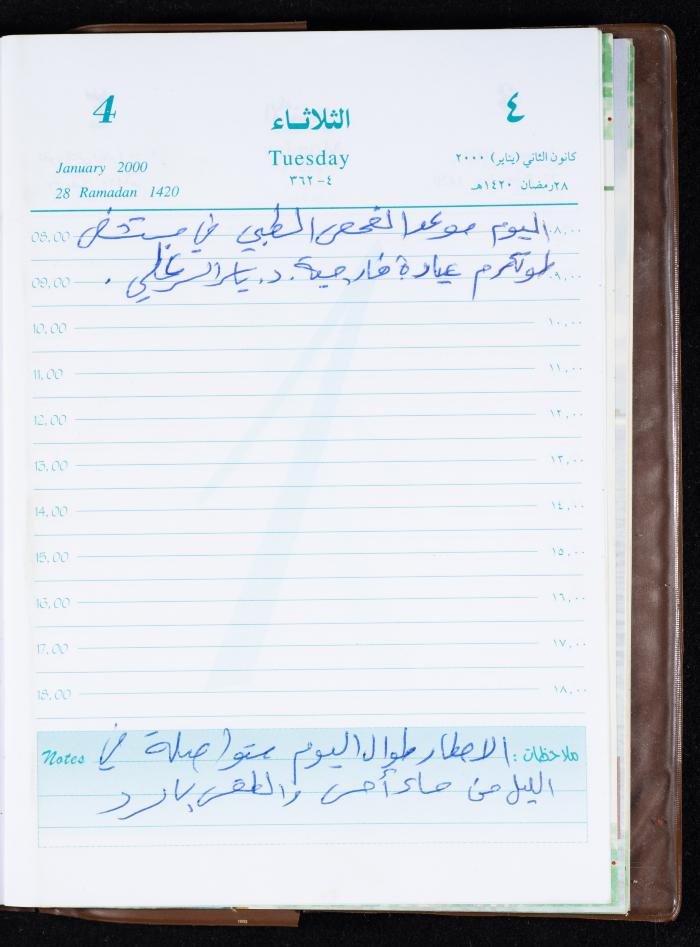 4 الثلاثاء ٤
Tuesday
January 2000 ٣٦٢-٤ كانون الثاني (يناير) ٢٠٠٠
28 Ramadan 1420 ٢٨ رمضان ١٤٢٠هـ
08.00 اليوم موعد الفحص الطبي في مستشفى ٨,٠٠
09.00 طولكرم عيادة خارجية. د. ياسر . ٩,٠٠
10.00 ١٠,٠٠
11.00 ١١,٠٠
12.00 ١٢,٠٠
13.00 ١٣,٠٠
14.00 ١٤,٠٠
15.00 ١٥,٠٠
16.00 ١٦,٠٠
17.00 ١٧,٠٠
18.00 ١٨,٠٠
ملاحظات : الامطار طوال اليوم متواصلة في Notes
الليل من مساء أمس والطقس بارد